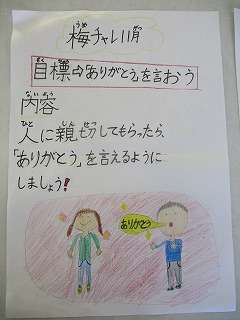 梅チャレ1月
目標⇨「ありがとう」を言おう
内容
人に親切してもらったら、
「ありがとう」を言えるように
しましょう!
ありがとう